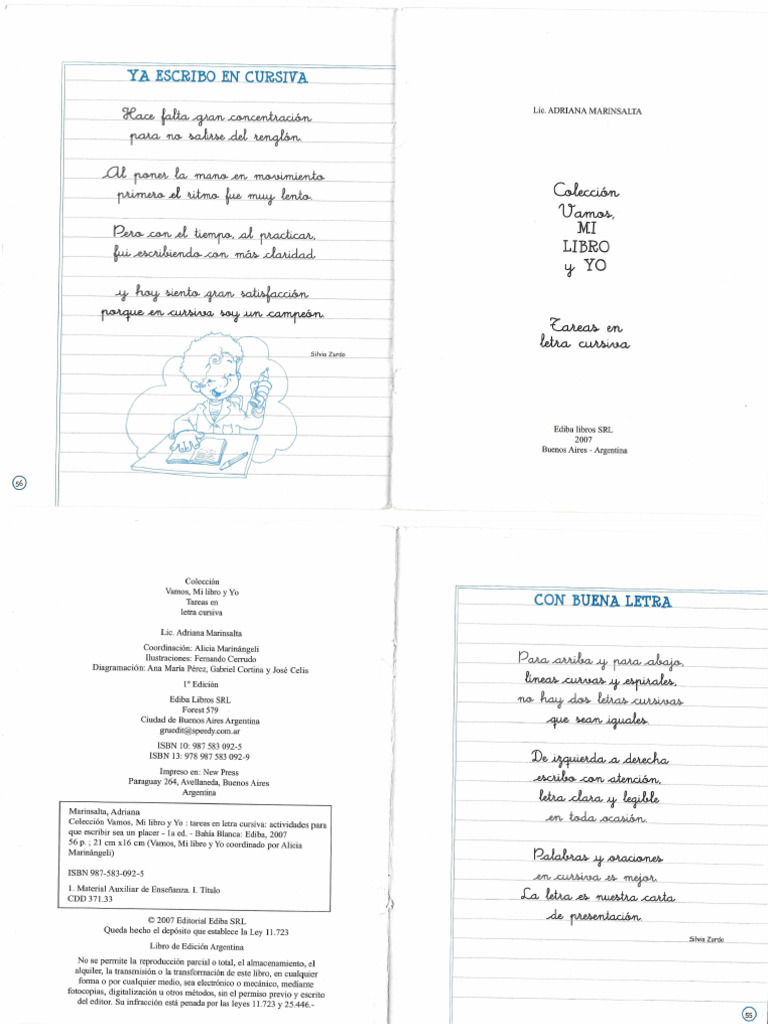 YA ESCRIBO EN CURSIVA
Hace falta gran concentración
para no salirse del renglón.
Al poner la mano en movimiento
primero el ritmo fue muy lento.
Pero con el tiempo, al practicar,
fui escribiendo con más claridad
y hoy siento gran satisfacción
porque en cursiva soy un campeón.
Silvia Zurdo
56
Lic. ADRIANA MARINSALTA
Colección
Vamos,
MI
LIBRO
y YO
Tareas en
letra cursiva
Ediba libros SRL
2007
Buenos Aires - Argentina
Colección
Vamos, Mi libro y Yo
Tareas en
letra cursiva
Lic. Adriana Marinsalta
Coordinación: Alicia Marinángeli
Ilustraciones: Fernando Cerrudo
Diagramación: Ana María Pérez, Gabriel Cortina y José Celis
1° Edición
Ediba Libros SRL
Forest 579
Ciudad de Buenos Aires Argentina
gruedit@speedy.com.ar
ISBN 10: 987 583 092-5
ISBN 13: 978 987 583 092-9
Impreso en: New Press
Paraguay 264, Avellaneda, Buenos Aires
Argentina
Marinsalta, Adriana
Colección Vamos, Mi libro y Yo : tareas en letra cursiva: actividades para
que escribir sea un placer - 1a ed. - Bahía Blanca: Ediba, 2007
56 p. ; 21 cm x16 cm (Vamos, Mi libro y Yo coordinado por Alicia
Marinángeli)
ISBN 987-583-092-5
1. Material Auxiliar de Enseñanza. I. Título
CDD 371.33
© 2007 Editorial Ediba SRL
Queda hecho el depósito que establece la Ley 11.723
Libro de Edición Argentina
No se permite la reproducción parcial o total, el almacenamiento, el
alquiler, la transmisión o la transformación de este libro, en cualquier
forma o por cualquier medio, sea electrónico o mecánico, mediante
fotocopias, digitalización u otros métodos, sin el permiso previo y escrito
del editor. Su infracción está penada por las leyes 11.723 y 25.446.-
CON BUENA LETRA
Para arriba y para abajo,
líneas curvas y espirales,
no hay dos letras cursivas
que sean iguales.
De izquierda a derecha
escribo con atención,
letra clara y legible
en toda ocasión.
Palabras y oraciones
en cursiva es mejor.
La letra es nuestra carta
de presentación.
Silvia Zurdo
55